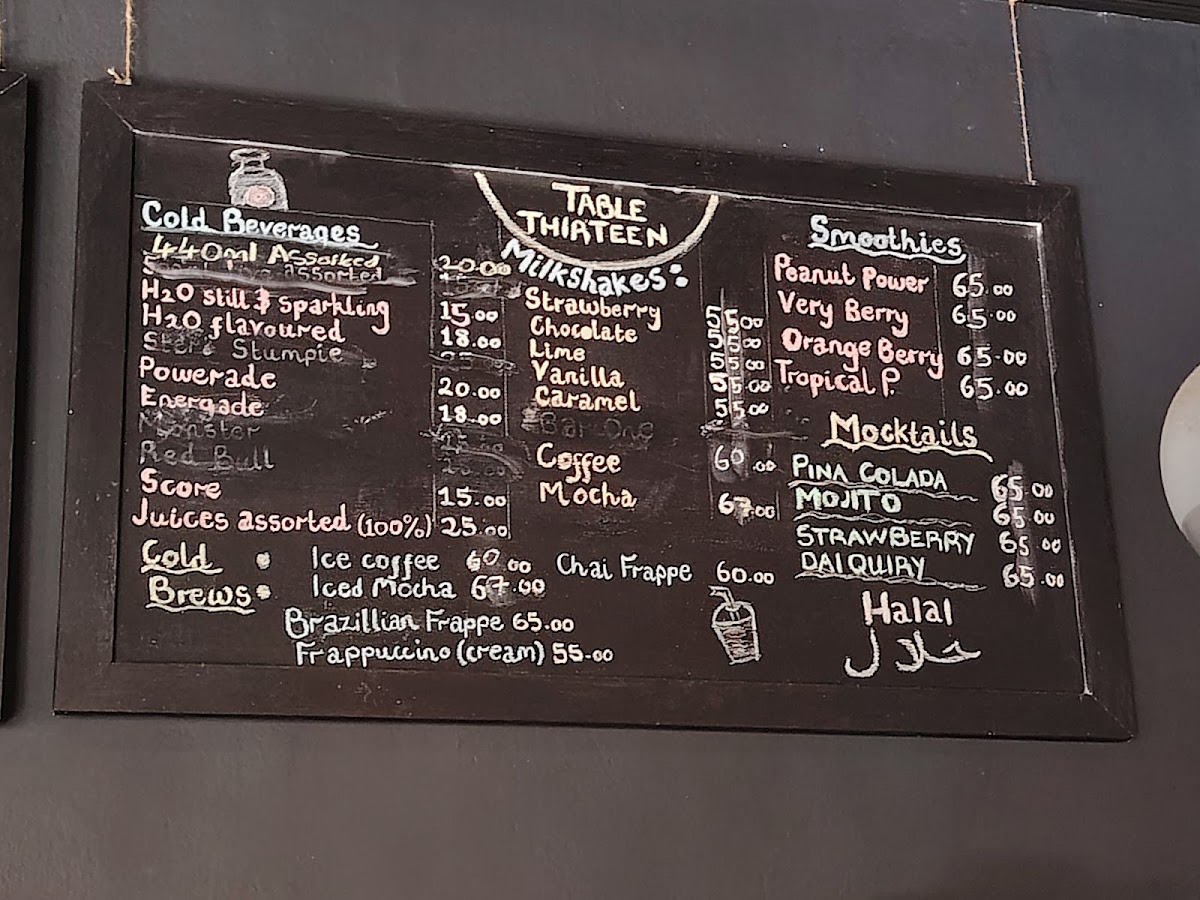 TABLE
THIRTEEN
Cold Beverages
440ml Assorted 20.00
assorted
H2O still & sparkling 15.00
H2O flavoured 18.00
Steri Stumpie
Powerade 20.00
Energade 18.00
Monster
Red Bull
Score 15.00
Juices assorted (100%) 25.00
Milkshakes:
Strawberry 55.00
Chocolate 55.00
Lime 55.00
Vanilla 55.00
Caramel 55.00
Bar One
Coffee 60.00
Mocha 67.00
Smoothies
Peanut Power 65.00
Very Berry 65.00
Orange Berry 65.00
Tropical P. 65.00
Mocktails
PINA COLADA 65.00
MOJITO 65.00
STRAWBERRY 65.00
DAIQUIRY 65.00
Cold Brews:
Ice coffee 60.00
Iced Mocha 67.00
Brazillian Frappe 65.00
Frappuccino (cream) 55.00
Chai Frappe 60.00
Halal
حلال